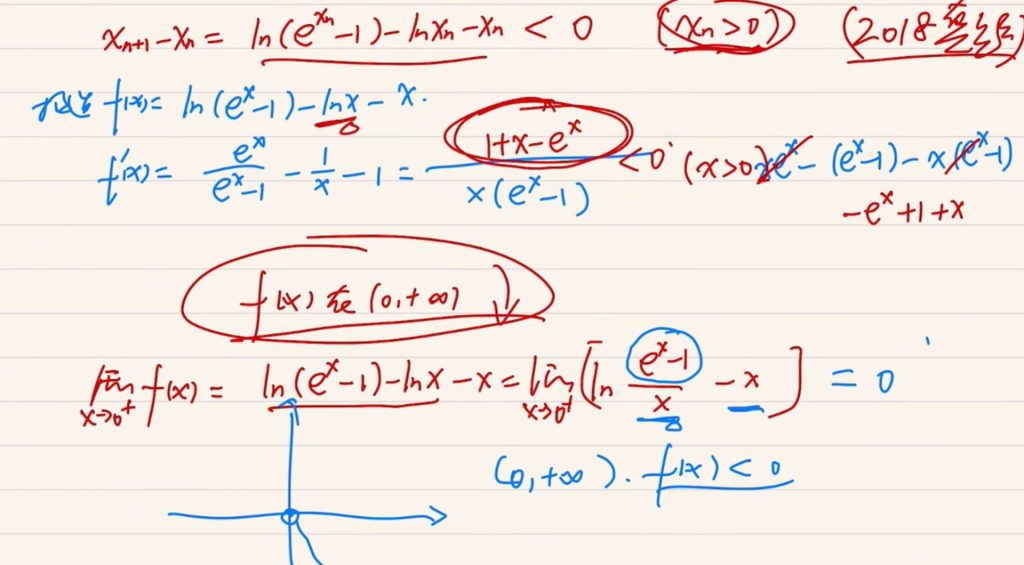 xₙ₊₁ - xₙ = ln(e^xₙ - 1) - ln xₙ - xₙ < 0 (xₙ > 0) (2018
f(x) = ln(e^x - 1) - ln x - x.
f'(x) = e^x/(e^x - 1) - 1/x - 1 = (1 + x - e^x)/(x(e^x - 1)) < 0 (x > 0) xe^x - (e^x - 1) - x(e^x - 1)
-e^x + 1 + x
f(x) 在 (0, +∞) ↓
lim x→0⁺ f(x) = ln(e^x - 1) - ln x - x = lim x→0⁺ [ln (e^x - 1)/x - x] = 0
(0, +∞). f(x) < 0